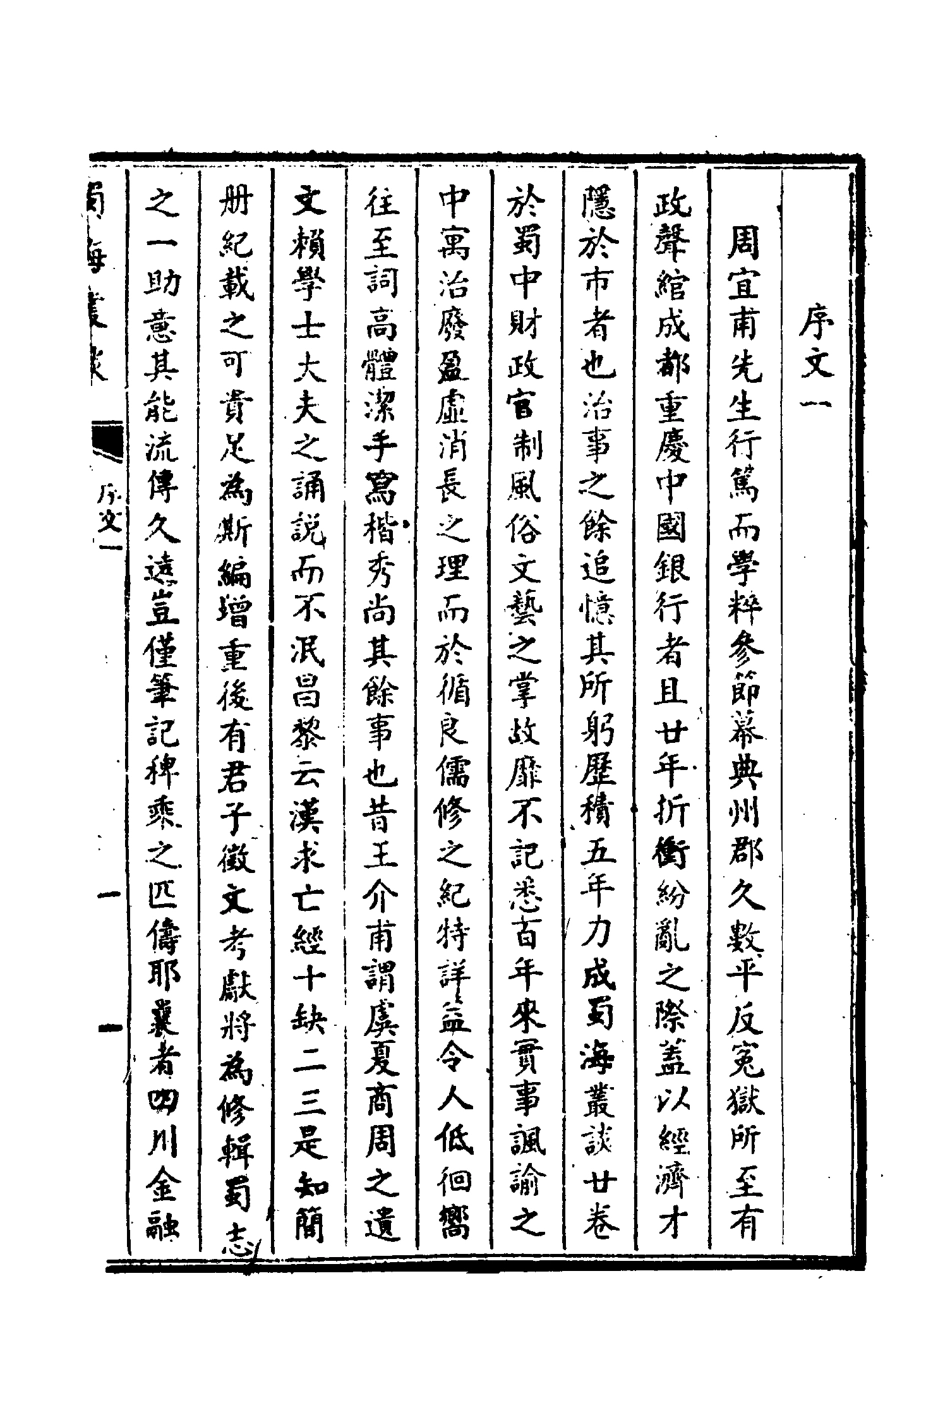 序文一
周宜甫先生行篤而學粹參節幕典州郡久數平反寃獄所至有
政聲綰成都重慶中國銀行者且廿年折衝紛亂之際蓋以經濟才
隱於市者也治事之餘追憶其所躬歷積五年力成蜀海叢談廿卷
於蜀中財政官制風俗文藝之掌故靡不記悉百年來實事諷諭之
中寓治廢盈虛消長之理而於循良儒修之紀特詳益令人低徊嚮
往至詞高體潔手寫楷秀尚其餘事也昔王介甫謂虞夏商周之遺
文賴學士大夫之誦説而不泯昌黎云漢求亡經十缺二三是知簡
册紀載之可貴足為斯編增重後有君子徵文考獻將為修輯蜀志
之一助意其能流傳久遠豈僅筆記稗乘之匹儔耶曩者四川金融
蜀海叢談
序文一
一